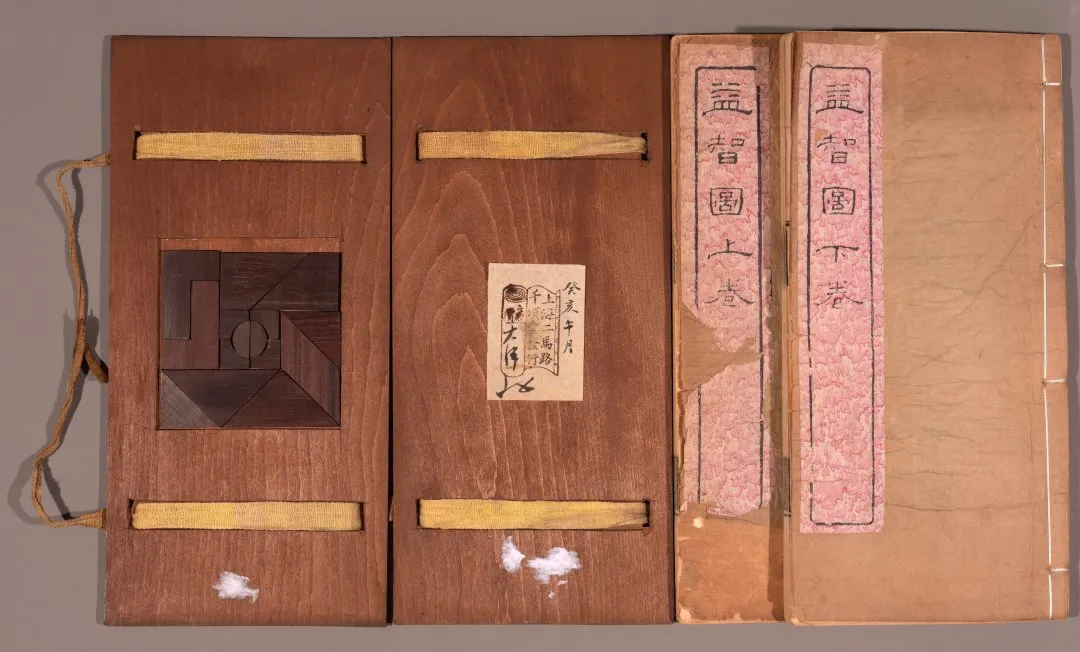 癸亥午月
上海二馬路
千發行
大洋
益智圖上卷
益智圖下卷